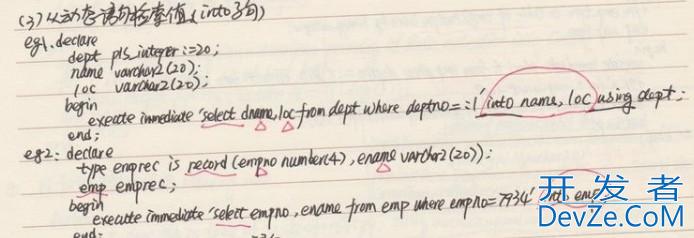 (3)从动态语句检索值(into子句)
eg1.declare
dept pls_integer:=20;
name varchar2(20);
loc varchar2(20);
begin
execute immediate 'select dname,loc from dept where deptno=:1' into name, loc using dept;
end;
eg2: declare
type emprec is record (empno number(4), ename varchar2(20));
emp emprec;
begin
execute immediate 'select empno, ename from emp where empno=7934' into emp
end;
开发者
DevZe.CoM